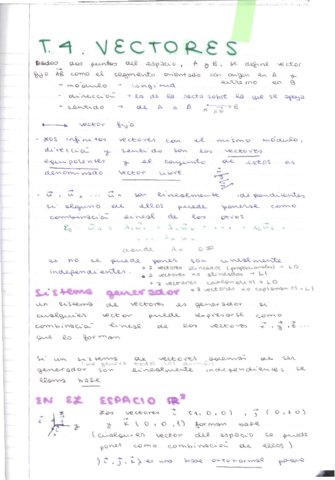 T.4. VECTORES
Dados dos puntos del espacio, A y B, se define vector
fijo AB como el segmento orientado con origen en A y
extremo en B
- módulo → longitud
- dirección → la de la recta sobre la que se apoya
- sentido → de A a B
→ vector fijo
- Los infinitos vectores con el mismo módulo,
dirección y sentido son los vectores
equipolentes y el conjunto de estos es
denominado vector libre
son linealmente dependientes
si alguno de ellos puede ponerse como
combinación lineal de los otros
donde
si no se puede pones son linealmente
independientes.
Sistema generador
un sistema de vectores es generador si
cualquier vector puede expresarse como
combinación lineal de los vectores
que lo forman
Si un sistema de vectores además de ser
generador son linealmente independientes se
llama base
EN EL ESPACIO R³
Los vectores i (1,0,0), j (0,1,0)
y k (0,0,1) forman base
(cualquier vector del espacio se puede
poner como combinación de ellos)
{i, j, k} es una base ortonormal porque